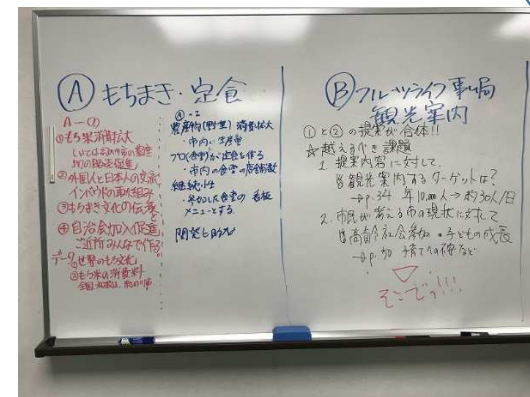 Ⓐ もちまき・定食
A-①
①もち米消費拡大
②外国人と日本人の交流
インバウンドの取り組み
③もちまき文化の伝承
④自治会加入促進
ご近所みんなで作る
データ 世界のもち文化
もち米の消費料
Ⓐ-2
農産物(野菜)消費拡大
・市内
プロ(食堂)が定食を作る
・市内の食堂の店舗数
継続性
・参加した食堂の看板
メニューとする。
Ⓑ フルーツライフ事ム局
観光案内
①と②の提案が合体!!
☆越えるべき課題
1. 提案内容に対して
観光案内するターゲットは?
→p.34 年 人→約30人/日
2. 市民が考える市の現状に対して
高齢 社会参加・子どもの成長
→p. 子育て など
そこでっ!!!